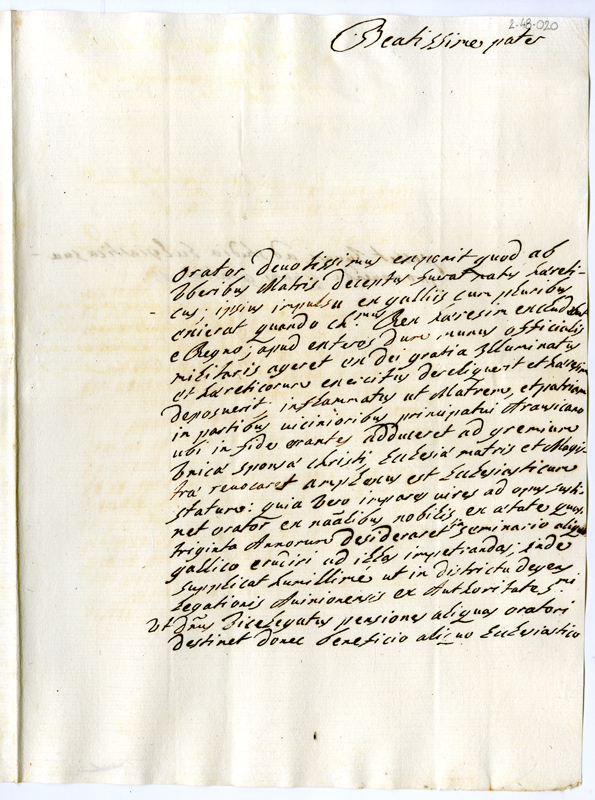 2-48-020
Beatissime pater
Orator devotissimus exponit quod ab
Vberibus Matris deceptus fuerat natus hæreti-
cus; ipsius impulsu ex galliis cum pluribus
exierat quando Ch.mus Rex hæresim excludebat
e Regno; apud exteros dum munus officialis
militaris ageret ex dei gratia Illuminatus
ut hæreticorum exercitus dereliquerit et hæresim
deposuerit; inflammatus ut Matrem, et patriam
in partibus vicinioribus principatui Arausicano
ubi in fide errantes adduceret ad gremium
Vnicæ sponsæ Christi, Ecclesiæ matris et Magis-
træ revocaret amplexus est Ecclesiasticum
statum: quia vero impares vires ad opus susti-
net orator ex nãalibus nobilis ex ætate quasi
triginta Annorum desideraret in seminario aliquo
gallico erudiri ad illas impetrandas; Inde
supplicat humillime ut in districtu degens
legationis Auinionensis ex Authoritate S.mi
Vt Dñus Vicelegatus pensiones aliquas oratori
destinet donec beneficio aliquo Ecclesiastico